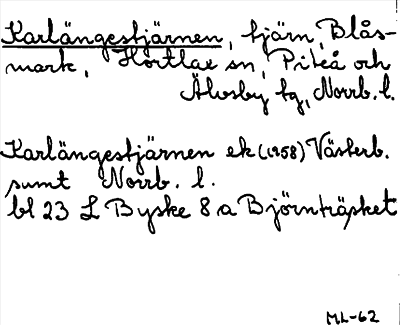 Karlängestjärnen, tjärn, Blås-
mark, Hortlax sn, Piteå och
Älvsby tg, Norrb. l.
Karlängestjärnen ek (1958) Västerb.
samt Norrb. l.
bl 23 L Byske 8 a Björnträsket
ML-62